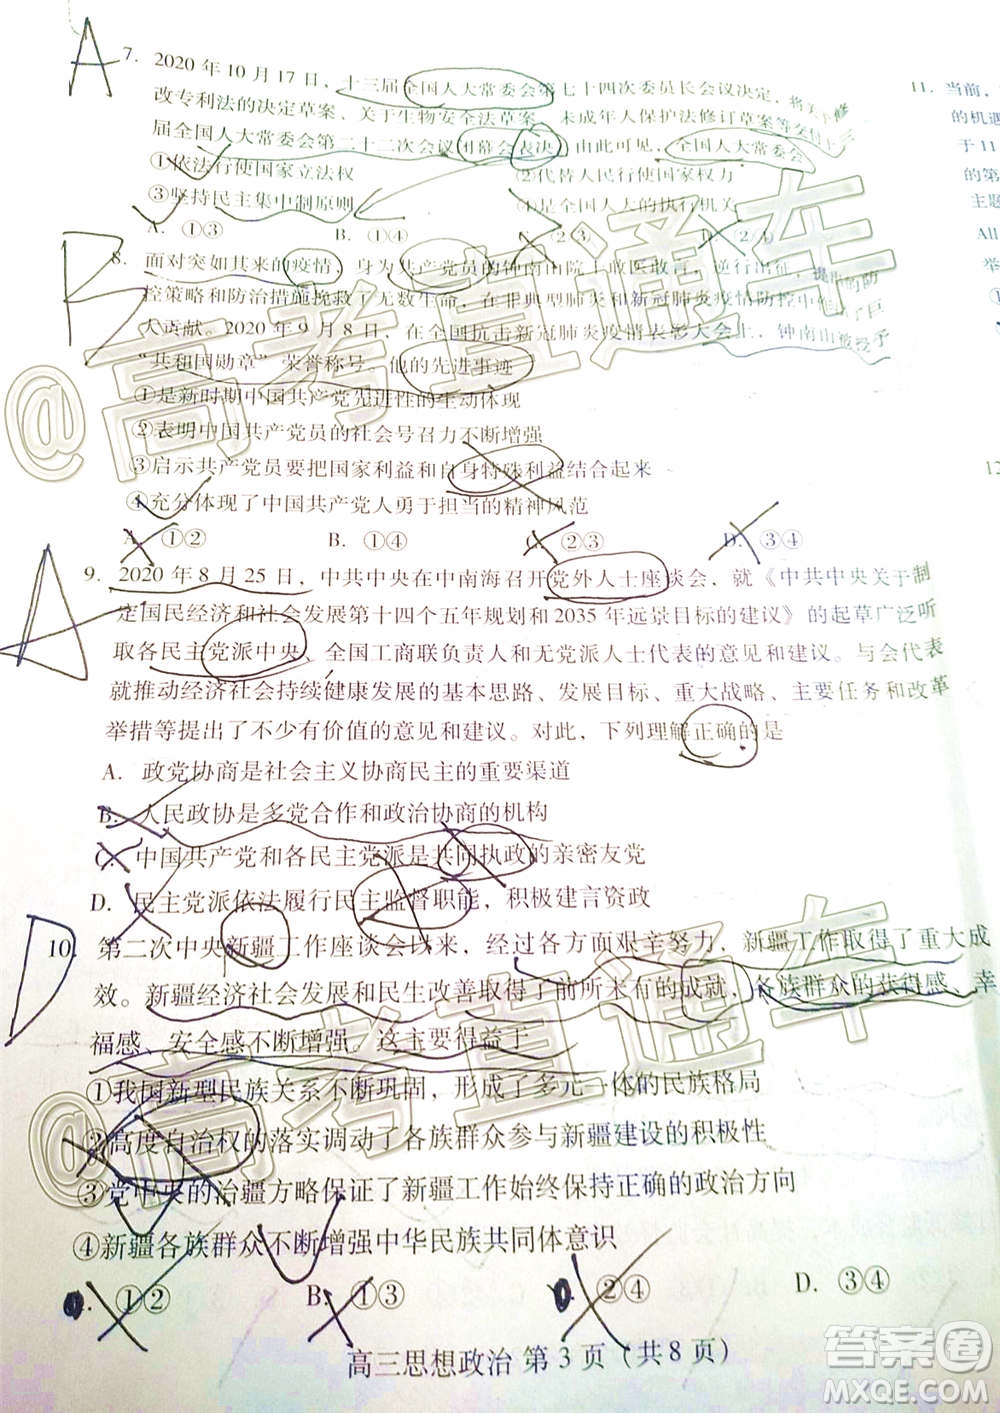 A
7. 2020 年 10 月 17 日，十三届全国人大常委会第七十四次委员长会议决定，将关于修
改专利法的决定草案、关于生物安全法草案、未成年人保护法修订草案等交付十三
届全国人大常委会第二十二次会议闭幕会表决。由此可见，全国人大常委会
①依法行使国家立法权 ②代替人民行使国家权力
③坚持民主集中制原则 ④是全国人大的执行机关
A. ①③ B. ①④ C. ②③ D. ②④
B
8. 面对突如其来的疫情，身为共产党员的钟南山院士敢医敢言，逆行出征，提出的防
控策略和防治措施挽救了无数生命，在非典型肺炎和新冠肺炎疫情防控中作出了巨
大贡献。2020 年 9 月 8 日，在全国抗击新冠肺炎疫情表彰大会上，钟南山被授予
“共和国勋章”荣誉称号。他的先进事迹
①是新时期中国共产党先进性的生动体现
②表明中国共产党员的社会号召力不断增强
③启示共产党员要把国家利益和自身特殊利益结合起来
④充分体现了中国共产党人勇于担当的精神风范
A. ①② B. ①④ C. ②③ D. ③④
A
9. 2020 年 8 月 25 日，中共中央在中南海召开党外人士座谈会，就《中共中央关于制
定国民经济和社会发展第十四个五年规划和 2035 年远景目标的建议》的起草广泛听
取各民主党派中央、全国工商联负责人和无党派人士代表的意见和建议。与会代表
就推动经济社会持续健康发展的基本思路、发展目标、重大战略、主要任务和改革
举措等提出了不少有价值的意见和建议。对此，下列理解正确的是
A. 政党协商是社会主义协商民主的重要渠道
B. 人民政协是多党合作和政治协商的机构
C. 中国共产党和各民主党派是共同执政的亲密友党
D. 民主党派依法履行民主监督职能，积极建言资政
D
10. 第二次中央新疆工作座谈会以来，经过各方面艰辛努力，新疆工作取得了重大成
效。新疆经济社会发展和民生改善取得了前所未有的成就，各族群众的获得感、幸
福感、安全感不断增强。这主要得益于
①我国新型民族关系不断巩固，形成了多元一体的民族格局
②高度自治权的落实调动了各族群众参与新疆建设的积极性
③党中央的治疆方略保证了新疆工作始终保持正确的政治方向
④新疆各族群众不断增强中华民族共同体意识
A. ①② B. ①③ C. ②④ D. ③④
高三思想政治 第 3 页（共 8 页）
11. 当前，
的机遇
于 11
的第
主题
All
举
①
12
@高考直通车
@高考直通车
答案圈
MXQE.COM